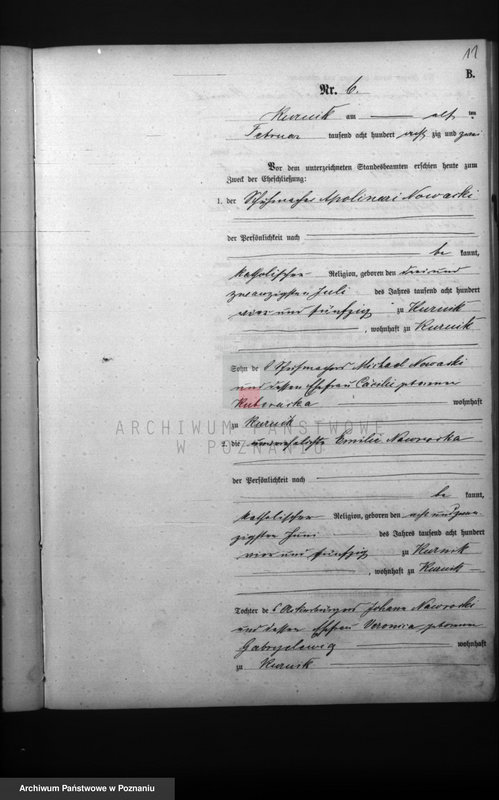 11
B.
Nr. 6.
Kurnik am elf ten
Februar tausend acht hundert acht zig und zwei
Vor dem unterzeichneten Standesbeamten erschien heute zum
Zweck der Eheschließung:
1. der Schuhmacher Apolinari Nowacki
der Persönlichkeit nach
be kannt,
katholischer Religion, geboren den drei und
zwanzigsten Juli des Jahres tausend acht hundert
vier und fünfzig zu Kurnik
, wohnhaft zu Kurnik
Sohn des Schuhmachers Michael Nowacki
und dessen Ehefrau Cäcilie geborenen
wohnhaft
zu Kurnik
2. die unverehelichte Emilie Nawrocka
der Persönlichkeit nach
be kannt,
katholischer Religion, geboren den acht und zwan
zigsten Juni des Jahres tausend acht hundert
vier und fünfzig zu Kurnik
, wohnhaft zu Kurnik
Tochter des Ackerbürgers Johann Nawrocki
und dessen Ehefrau Veronica geborenen
Gabryelewicz wohnhaft
zu Kurnik
ARCHIWUM PAŃSTWOWE
W POZNANIU
Archiwum Państwowe w Poznaniu